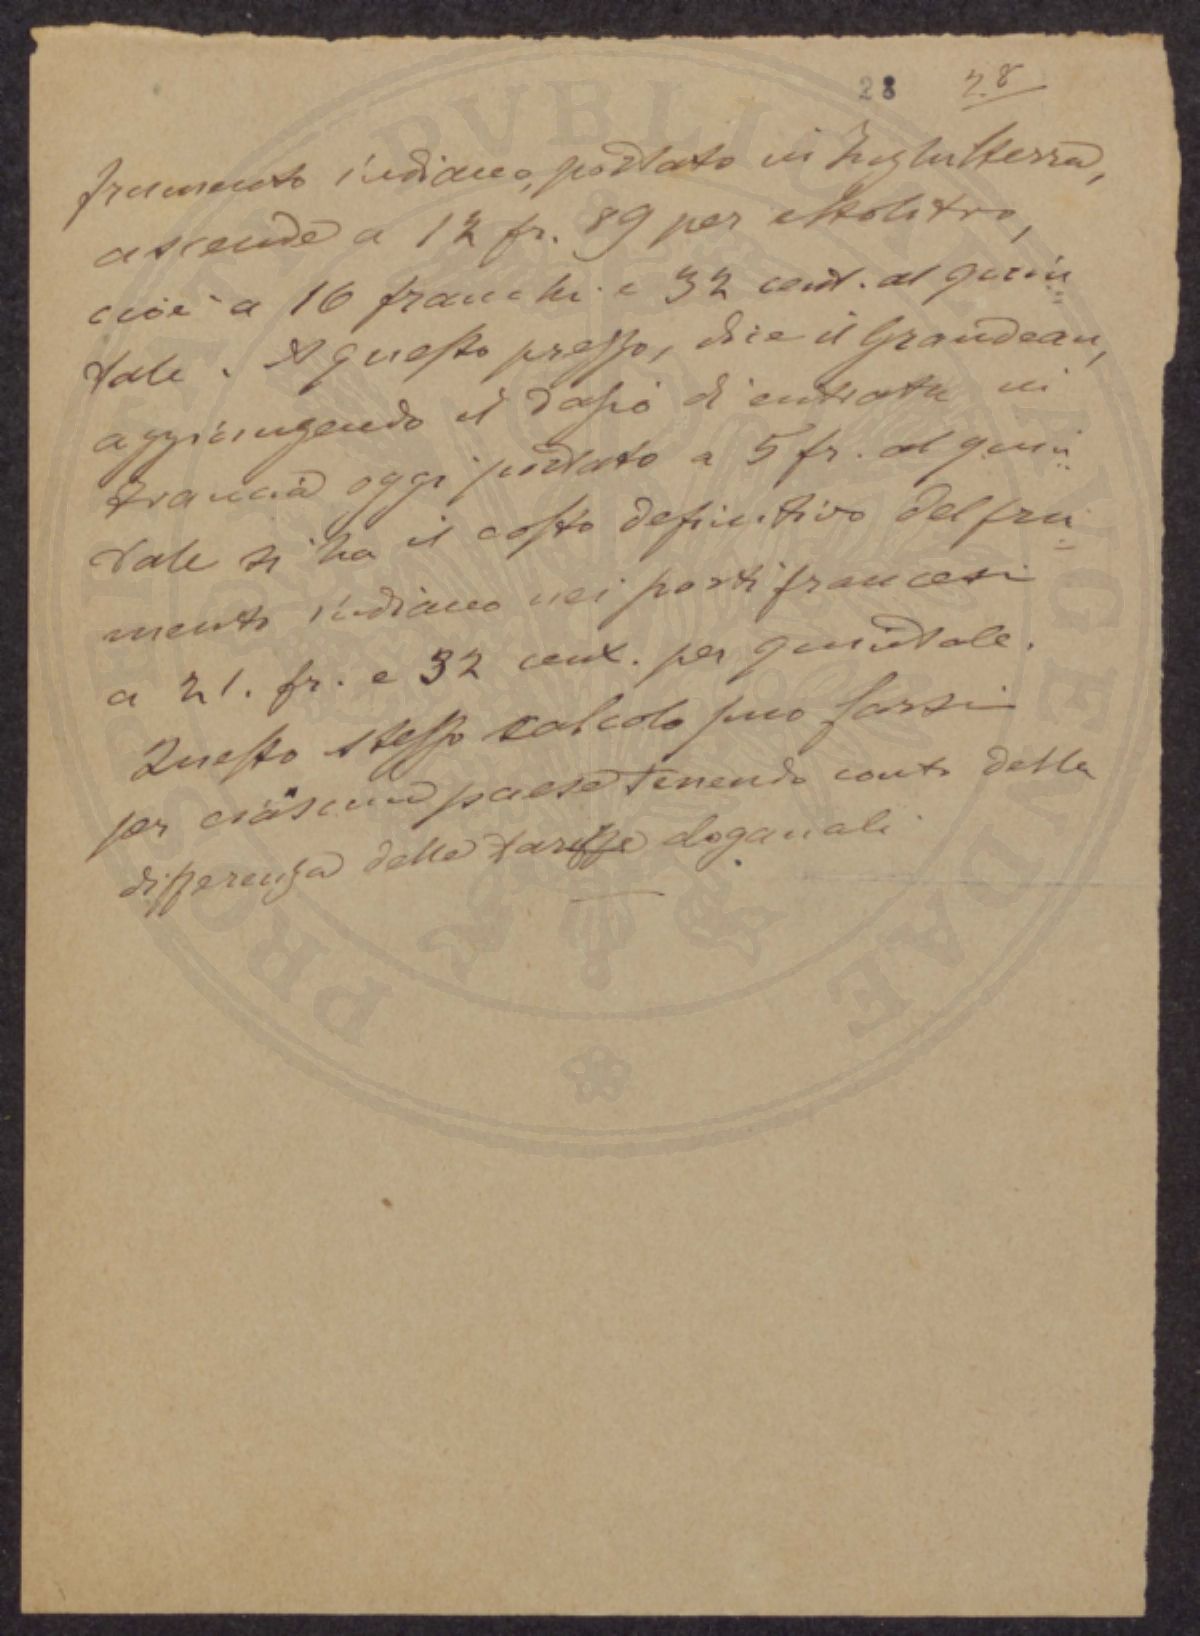 28 28
frumento indiano, portato in Inghilterra,
ascende a 12 fr. 89 per ettolitro,
cioè a 16 franchi e 32 cent. al quin=
tale. A questo prezzo, dice il Grandeau,
aggiungendo il dazio di entrata in
Francia oggi portato a 5 fr. al quin=
tale si ha il costo definitivo del fru=
mento indiano nei porti francesi
a 21. fr. e 32 cent. per quintale.
Questo stesso calcolo può farsi
per ciascun paese tenendo conto della
differenza delle tariffe doganali.
PVBLICVM
PROSPICIENTI
LAVDAE